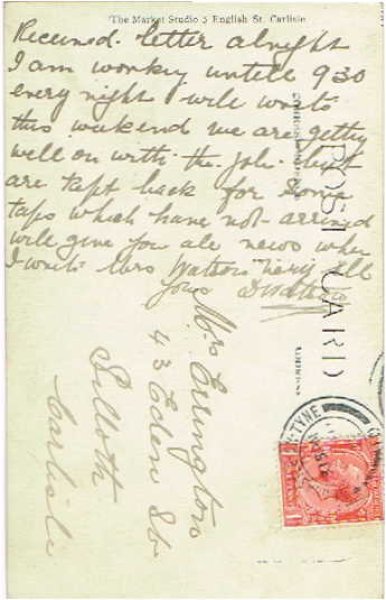 The Market Studio 5 English St. Carlisle
Received letter alright
I am working untill 9 30
every night will write
this weekend we are getting
well on with the job but
are kept back for some
taps which have not arrived
will give you all news when
I write Mrs Watson very ill
yours
POST CARD
ADDRESS
Mrs Errington
43 Eden St
Silloth
Carlisle
TYNE